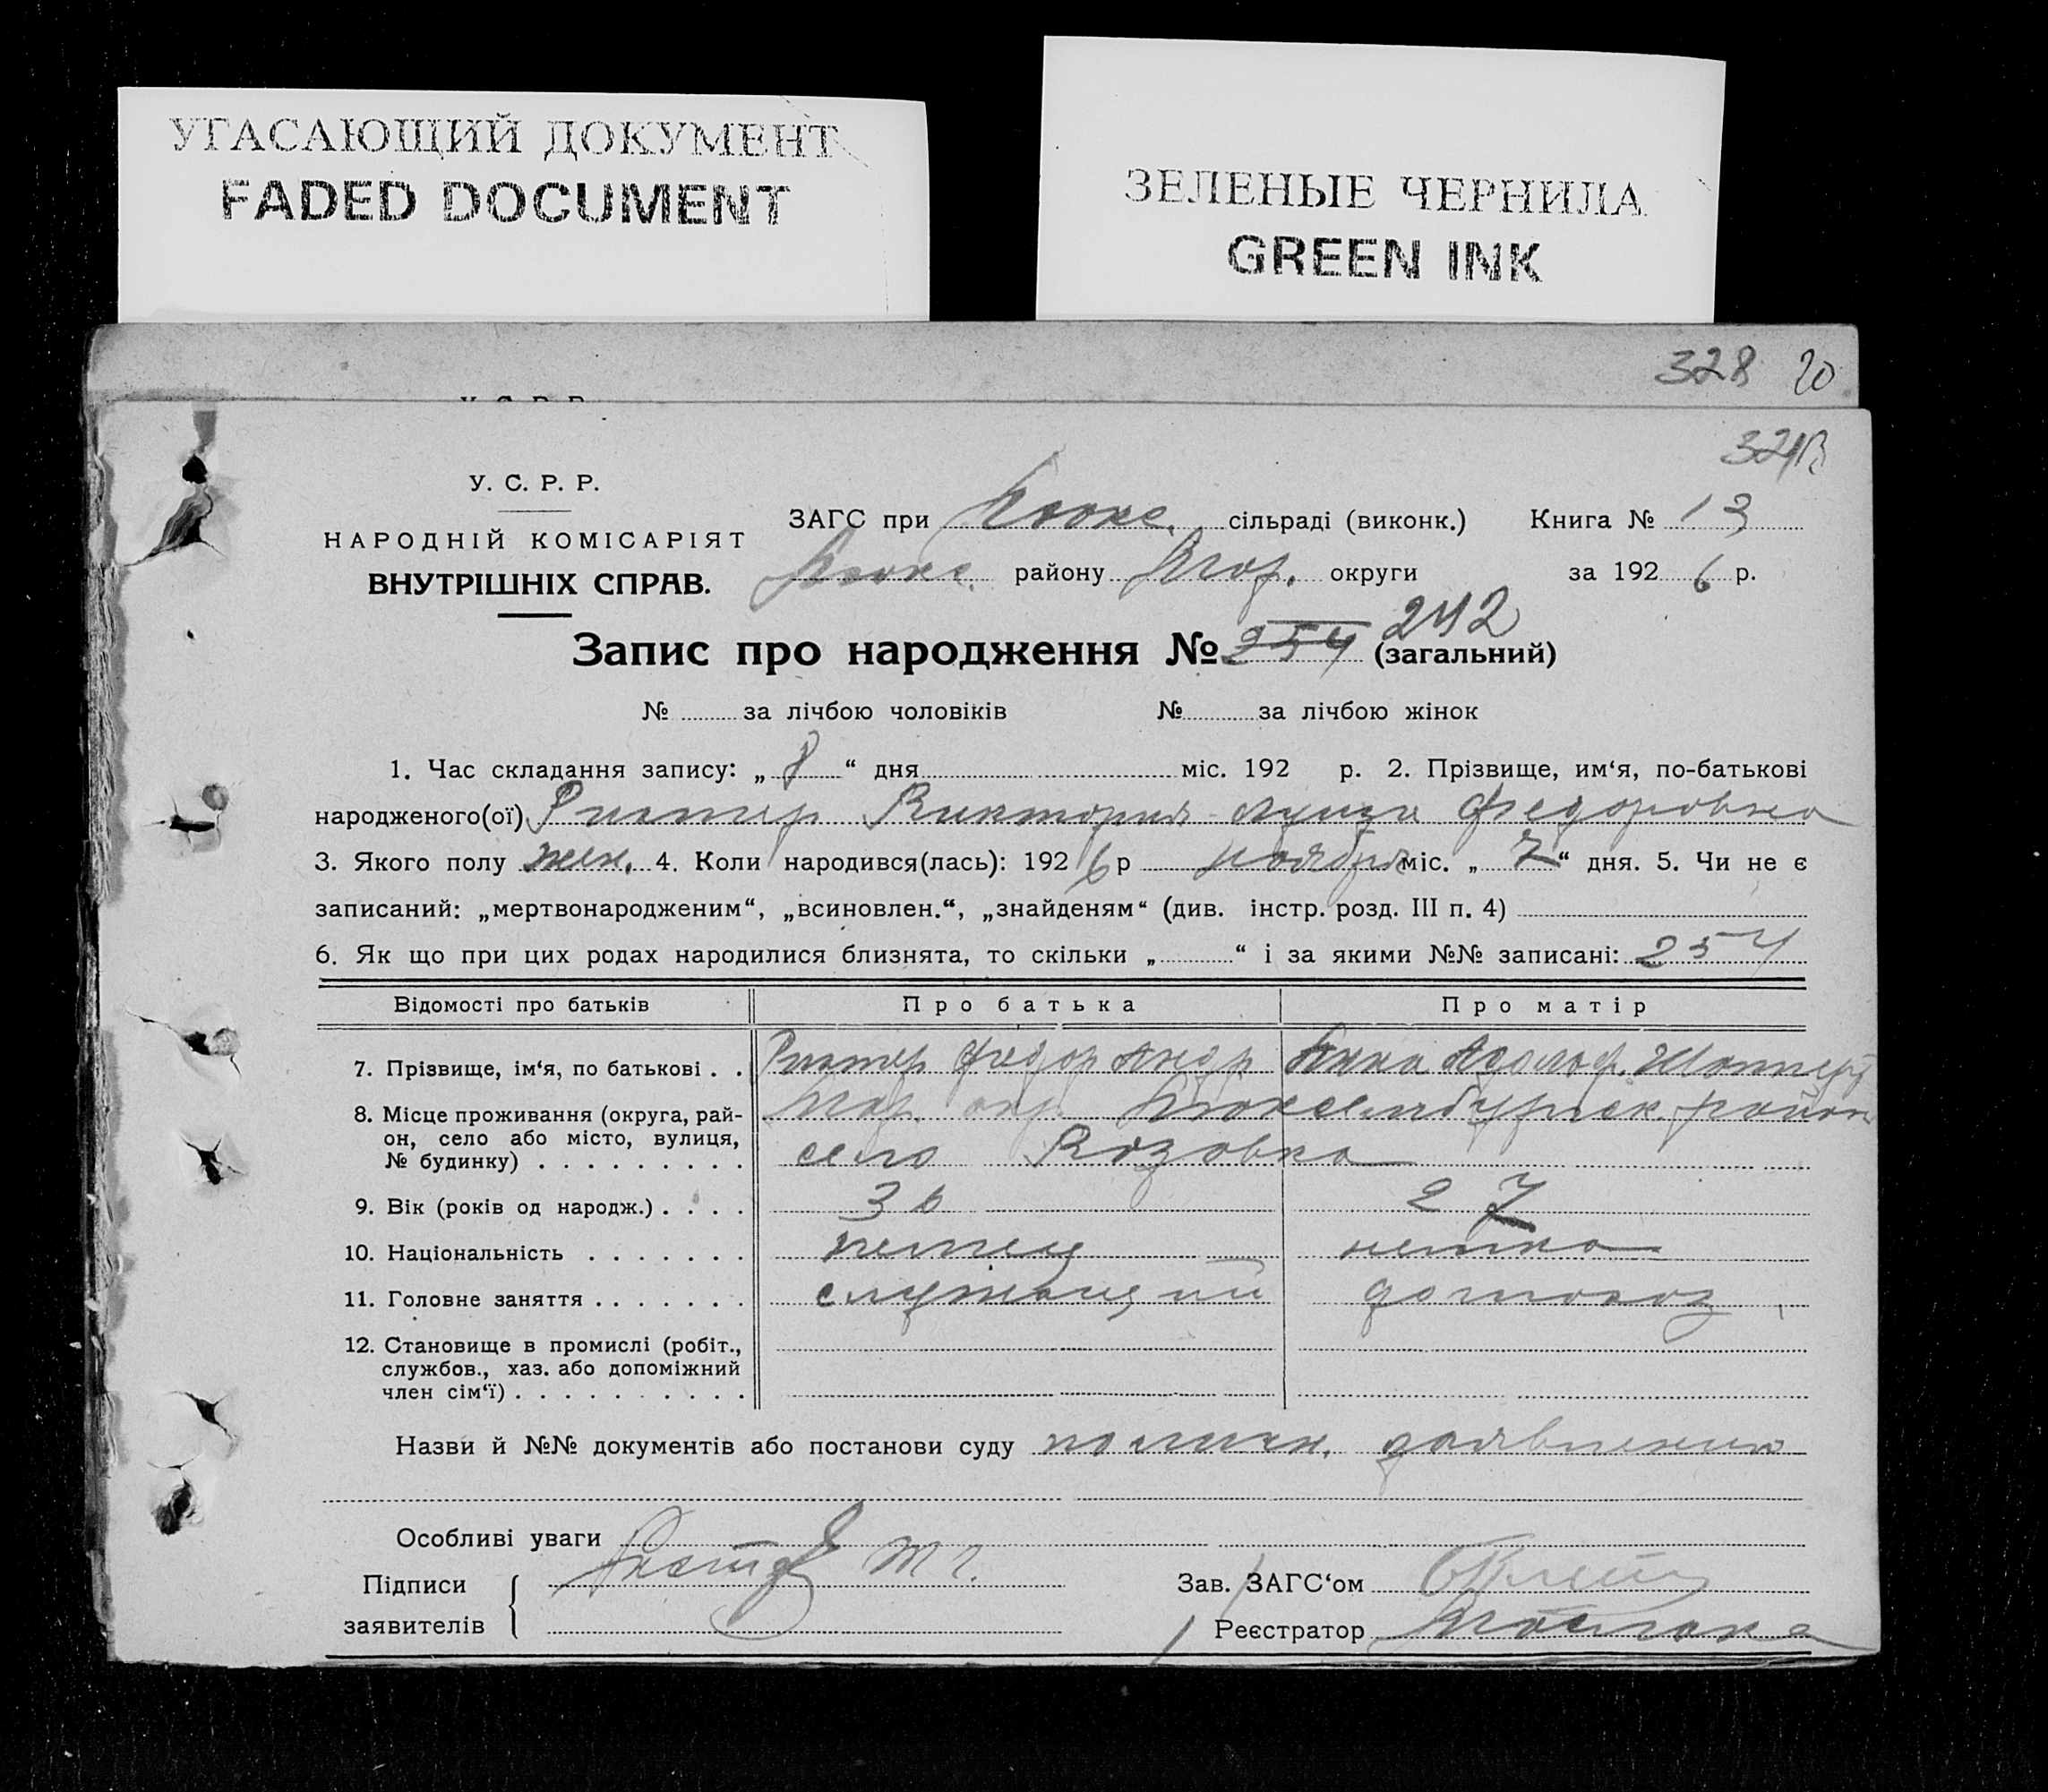 УГАСАЮЩИЙ ДОКУМЕНТ
FADED DOCUMENT
ЗЕЛЕНЫЕ ЧЕРНИЛА
GREEN INK
328 20
У. С. Р. Р.
НАРОДНІЙ КОМІСАРІЯТ
ВНУТРІШНІХ СПРАВ.
ЗАГС при Люкс. сільраді (виконк.) Книга № 13
Люкс. району Мар. округи за 1926 р.
Запис про народження № 254 242 (загальний)
№ за лічбою чоловіків № за лічбою жінок
1. Час складання запису: „ 8 “ дня міс. 192 р. 2. Прізвище, им‘я, по-батькові
народженого(ої) Рихтер Виктория Луиза Федоровна
3. Якого полу жен. 4. Коли народився(лась): 1926 р ноября міс. „ 7 “ дня. 5. Чи не є
записаний: „мертвонародженим“, „всиновлен.“, „знайденям“ (див. інстр. розд. III п. 4)
6. Як що при цих родах народилися близнята, то скільки „ “ і за якими №№ записані: 254
Відомості про батьків Про батька Про матір
7. Прізвище, ім‘я, по батькові . . Рихтер Федор Андр Анна Адольф.
8. Місце проживання (округа, рай-
он, село або місто, вулиця,
№ будинку) . . . . . . . . .
Мар. окр Люксембургск. район
село Розовка
9. Вік (років од народж.) . . . . 36 27
10. Національність . . . . . . . немец немка
11. Головне заняття . . . . . . . служащий домохоз
12. Становище в промислі (робіт.,
службов., хаз. або допоміжний
член сім‘ї) . . . . . . . . . .
Назви й №№ документів або постанови суду по личн. заявлению
Особливі уваги
Підписи
заявителів
Зав. ЗАГС‘ом
Реєстратор